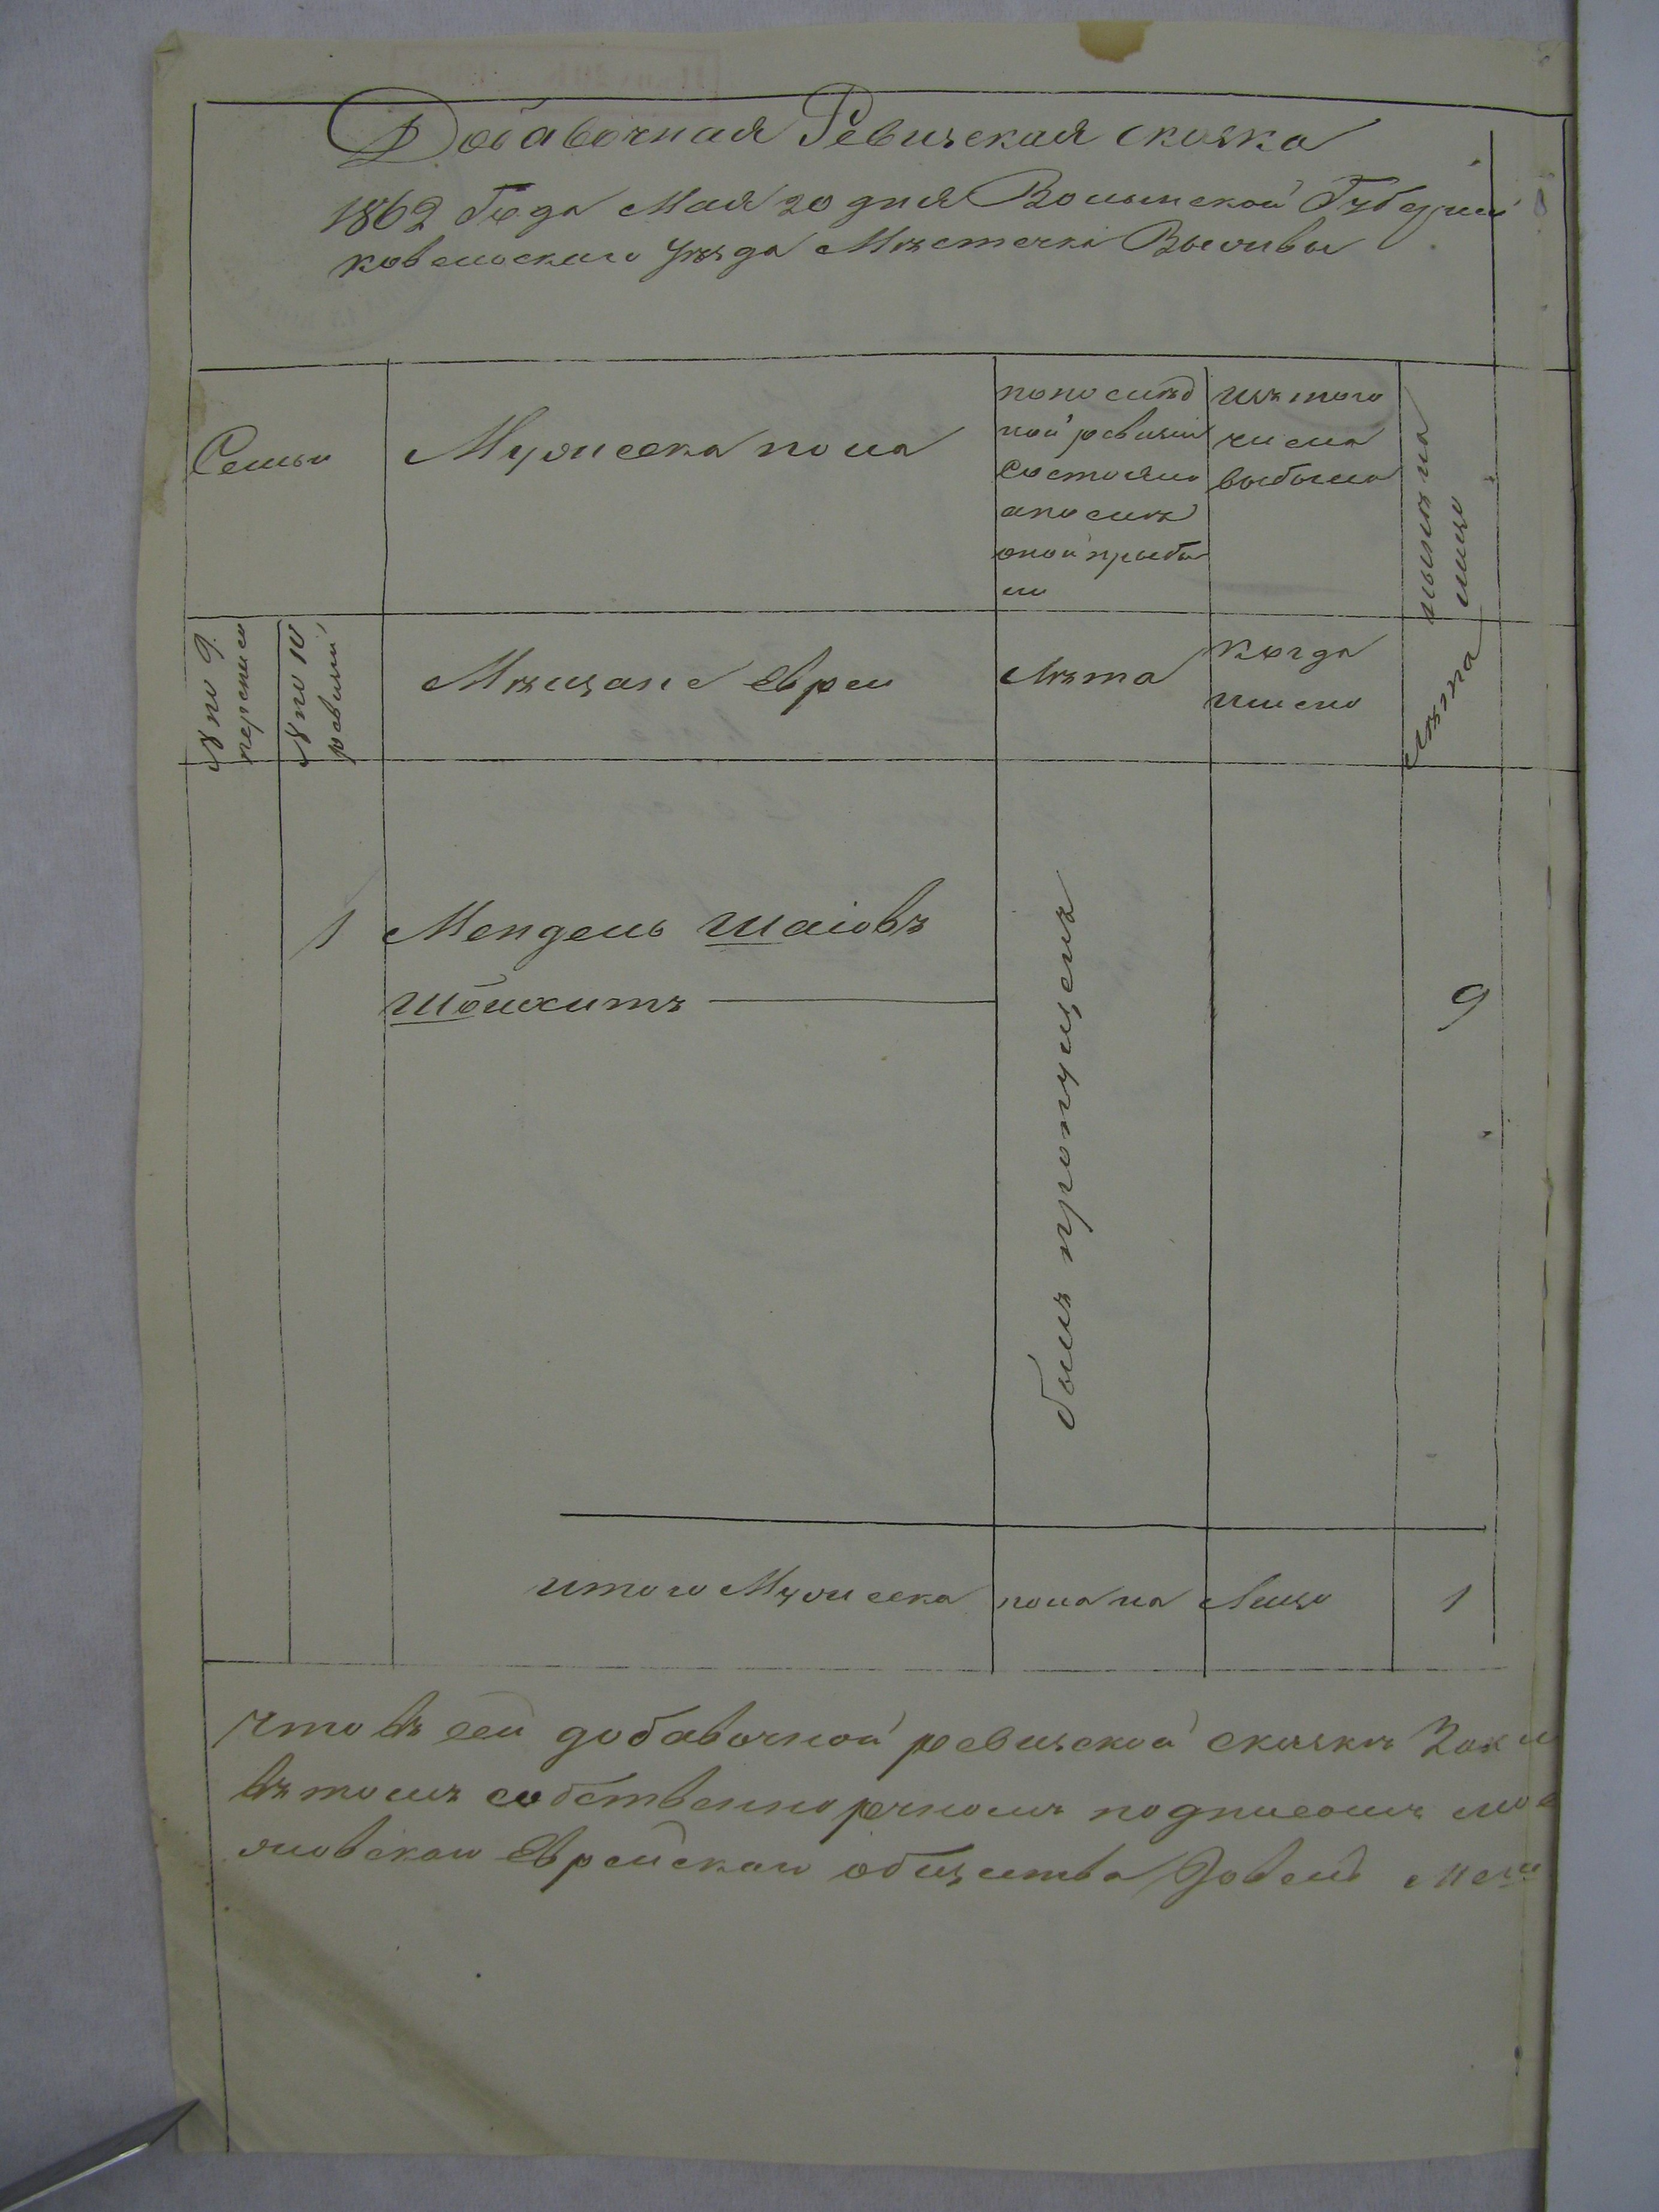 Добавочная Ревизская сказка
1862 Года Мая 20 дня Волынской Губерніи
Ковельскаго уѣзда Мѣстечка Выжвы
Семьи
Мужеска пола
по послѣд
ной ревизіи
состояло
а послѣ
оной прибы
ло
изъ того
числа
выбыло
нынѣ на
лицо
№ по 9
переписи
№ по 10
ревизіи
Мѣщане Евреи
Лѣта
когда
имено
Лѣта
1
Мендель Шаіовъ
Шойхитъ
былъ пропущенъ
9
итого Мужеска пола на Лицо 1
что въ сей добавочной ревизской сказкѣ
въ томъ собственноручномъ подписомъ
Еврейскаго общества